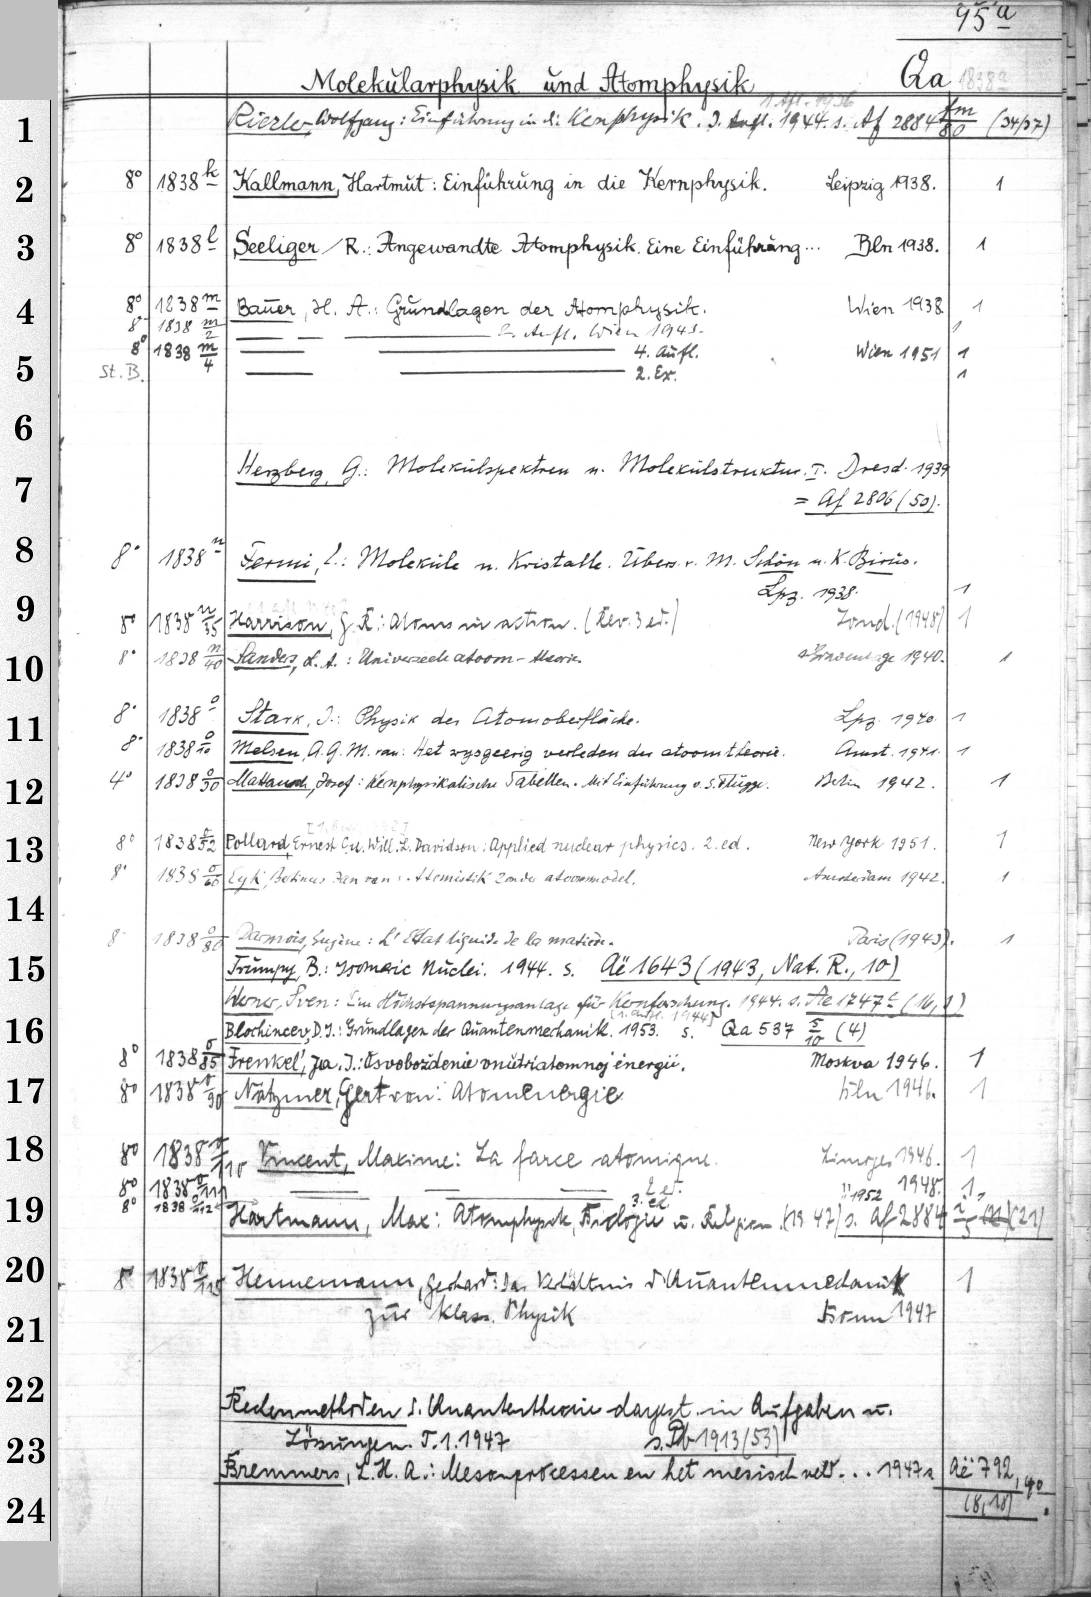 95 a
Molekularphysik und Atomphysik Qa 1838a
1 Afl. 1936
1 Riezler, Wolfgang: Einführung in die Kernphysik. 3. Aufl. 1944. s. Af 2884 fm/80 (34/37)
2 8° 1838 k Kallmann, Hartmut: Einführung in die Kernphysik. Leipzig 1938. 1
3 8° 1838 l Seeliger, R.: Angewandte Atomphysik. Eine Einführung... Bln 1938. 1
4 8° 1838 m Bauer, H. A.: Grundlagen der Atomphysik. Wien 1938 1
8° 1838 m/2 — — — 2. Aufl. Wien 1943. 1
8° 1838 m/4 — — 4. Aufl. Wien 1951 1
5 St. B. — — 2. Ex. 1
6
Herzberg, G.: Molekülspektren u. Molekülstruktur. I. Dresd. 1939
7 = Af 2806 (50).
8 8° 1838 n Fermi, E.: Moleküle u. Kristalle. Übers. v. M. Schön u. K. Birus.
Lpz. 1938. 1
9 8° 1838 n/35 Harrison, G. R.: Atoms in action. (Rev. 3 ed.) Lond. (1948) 1
10 8° 1838 n/40 Sanders, : Universeele atoom-theorie. 1940. 1
11 8° 1838 o Stark, J.: Physik der Atomoberfläche. Lpz. 1940. 1
8° 1838 o/10 Melsen, A. G. M. van: Het wijsgeerig verleden der atoomtheorie. Amst. 1941. 1
12 4° 1838 o/50 Mattauch, Josef: Kernphysikalische Tabellen. Mit Einführung v. S. Flügge. Berlin 1942. 1
13 8° 1838 o/52 Pollard, Ernest u. Will. L. Davidson: Applied nuclear physics. 2. ed. New York 1951. 1
8° 1838 o/60 Eyk, van: Atomistik zonder atoommodel. Amsterdam 1942. 1
14
8° 1838 o/80 Darmois, Eugène: L'État liquide de la matière. Paris (1943). 1
15 Trumpy, B.: Isomeric Nuclei. 1944. s. Aë 1643 (1943, Nat. R., 10)
Werner, Sven: Eine Höchstspannungsanlage für Kernforschung. 1944. s. Ae 1747 c (16, 1)
(1. Aufl. 1944)
16 Blochincev, D. I.: Grundlagen der Quantenmechanik. 1953. s. Qa 537 s/10 (4)
8° 1838 o/85 Frenkel', Ja. I.: Osvoboždenie vnutriatomnoj ėnergii. Moskva 1946. 1
17 8° 1838 o/90 Natzmer, Gert von: Atomenergie Bln 1946. 1
18 8° 1838 o/110 Vincent, Maxime: La farce atomique. Limoges 1946. 1
8° 1838 o/111 — — — 2 et. " 1948. 1,
19 8° 1838 o/112 3. et " 1952
Hartmann, Max: Atomphysik, Biologie u. Religion. (1947) s. Af 2884 i/5 (21)
20 8° 1838 o/115 Hennemann, Gerhard: Das Verhältnis d. Quantenmechanik 1
21 zur klass. Physik Bonn 1947
22 Rechenmethoden d. Quantentheorie dargest. in Aufgaben u.
23 Lösungen. T. 1. 1947 s. Pb 1913 (53)
Bremmers, L. H. A.: Mesonprocessen en het mesisch veld... 1947 s. Aë 792, 40
24 (8, 10)